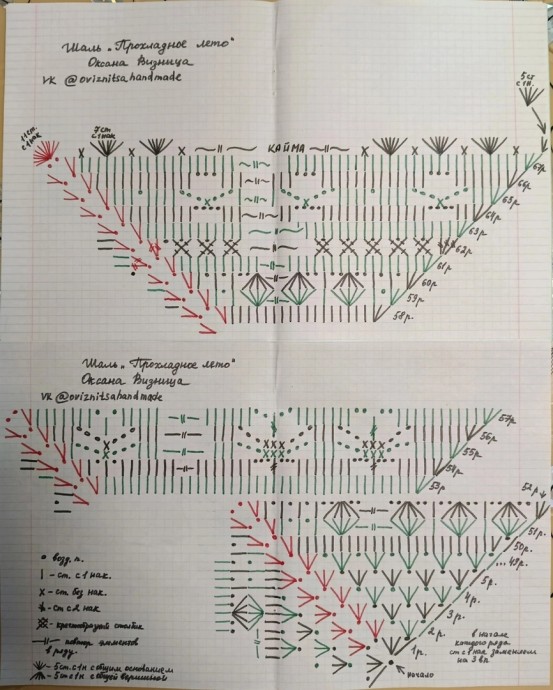 Шаль „Прохладное лето"
Оксана Визница
VK @oviznitsa_handmade
5 ст
с1н.
11 ст.
с1нак
7 ст
с1нак
КАЙМА
67р.
66р.
65р.
64р.
63р.
62р.
61р.
60р.
59р.
58р.
Шаль „Прохладное лето"
Оксана Визница
VK @oviznitsahandmade
57р.
56р.
55р.
54р.
53р.
52р.
51р.
50р.
...49р.
5р.
4р.
3р.
2р.
1р.
начало
в начале
каждого ряда
ст с1нак заменяем
на 3 вп
возд. п.
- ст. с 1 нак.
- ст без нак.
- ст с 2 нак
- крестообразный столбик
- повтор элементов
в ряду
- 5 ст. с1н с общим основанием
- 5 ст с1н с общей вершиной